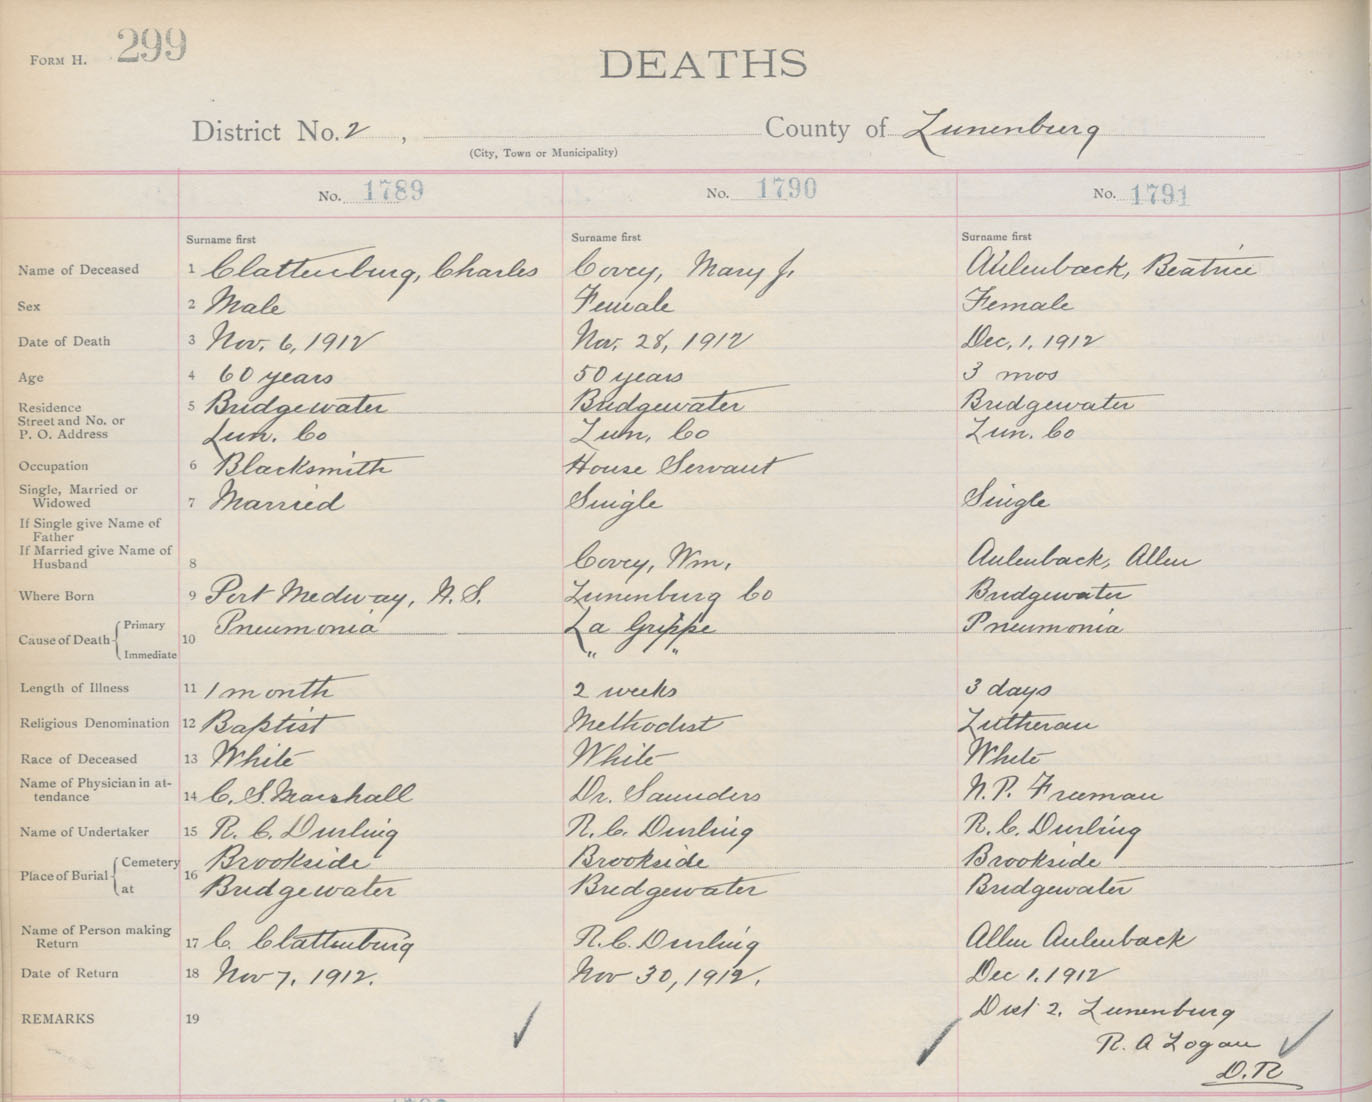 FORM H. 299
DEATHS
District No. 2, County of Lunenburg
(City, Town or Municipality)
No. 1789 No. 1790 No. 1791
Surname first Surname first Surname first
Name of Deceased 1 Clattenburg, Charles Covey, Mary J. Aulenback, Beatrice
Sex 2 Male Female Female
Date of Death 3 Nov. 6, 1912 Nov. 28, 1912 Dec. 1. 1912
Age 4 60 years 50 years 3 mos
Residence 5 Bridgewater Bridgewater Bridgewater
Street and No. or
P. O. Address Lun. Co Lun. Co Lun. Co
Occupation 6 Blacksmith House Servant
Single, Married or
Widowed 7 Married Single Single
If Single give Name of
Father
If Married give Name of
Husband 8 Covey, Wm. Aulenback, Allen
Where Born 9 Port Medway, N.S. Lunenburg Co Bridgewater
Cause of Death Primary 10 Pneumonia La Grippe Pneumonia
Immediate " "
Length of Illness 11 1 month 2 weeks 3 days
Religious Denomination 12 Baptist Methodist Lutheran
Race of Deceased 13 White White White
Name of Physician in at-
tendance 14 C. S. Marshall Dr. Saunders N. P. Freeman
Name of Undertaker 15 R. C. Durling R. C. Durling R. C. Durling
Place of Burial Cemetery 16 Brookside Brookside Brookside
at Bridgewater Bridgewater Bridgewater
Name of Person making
Return 17 C. Clattenburg R. C. Durling Allen Aulenback
Date of Return 18 Nov 7. 1912. Nov 30, 1912. Dec 1. 1912
REMARKS 19 Dist 2. Lunenburg
R. A Logan
D. R